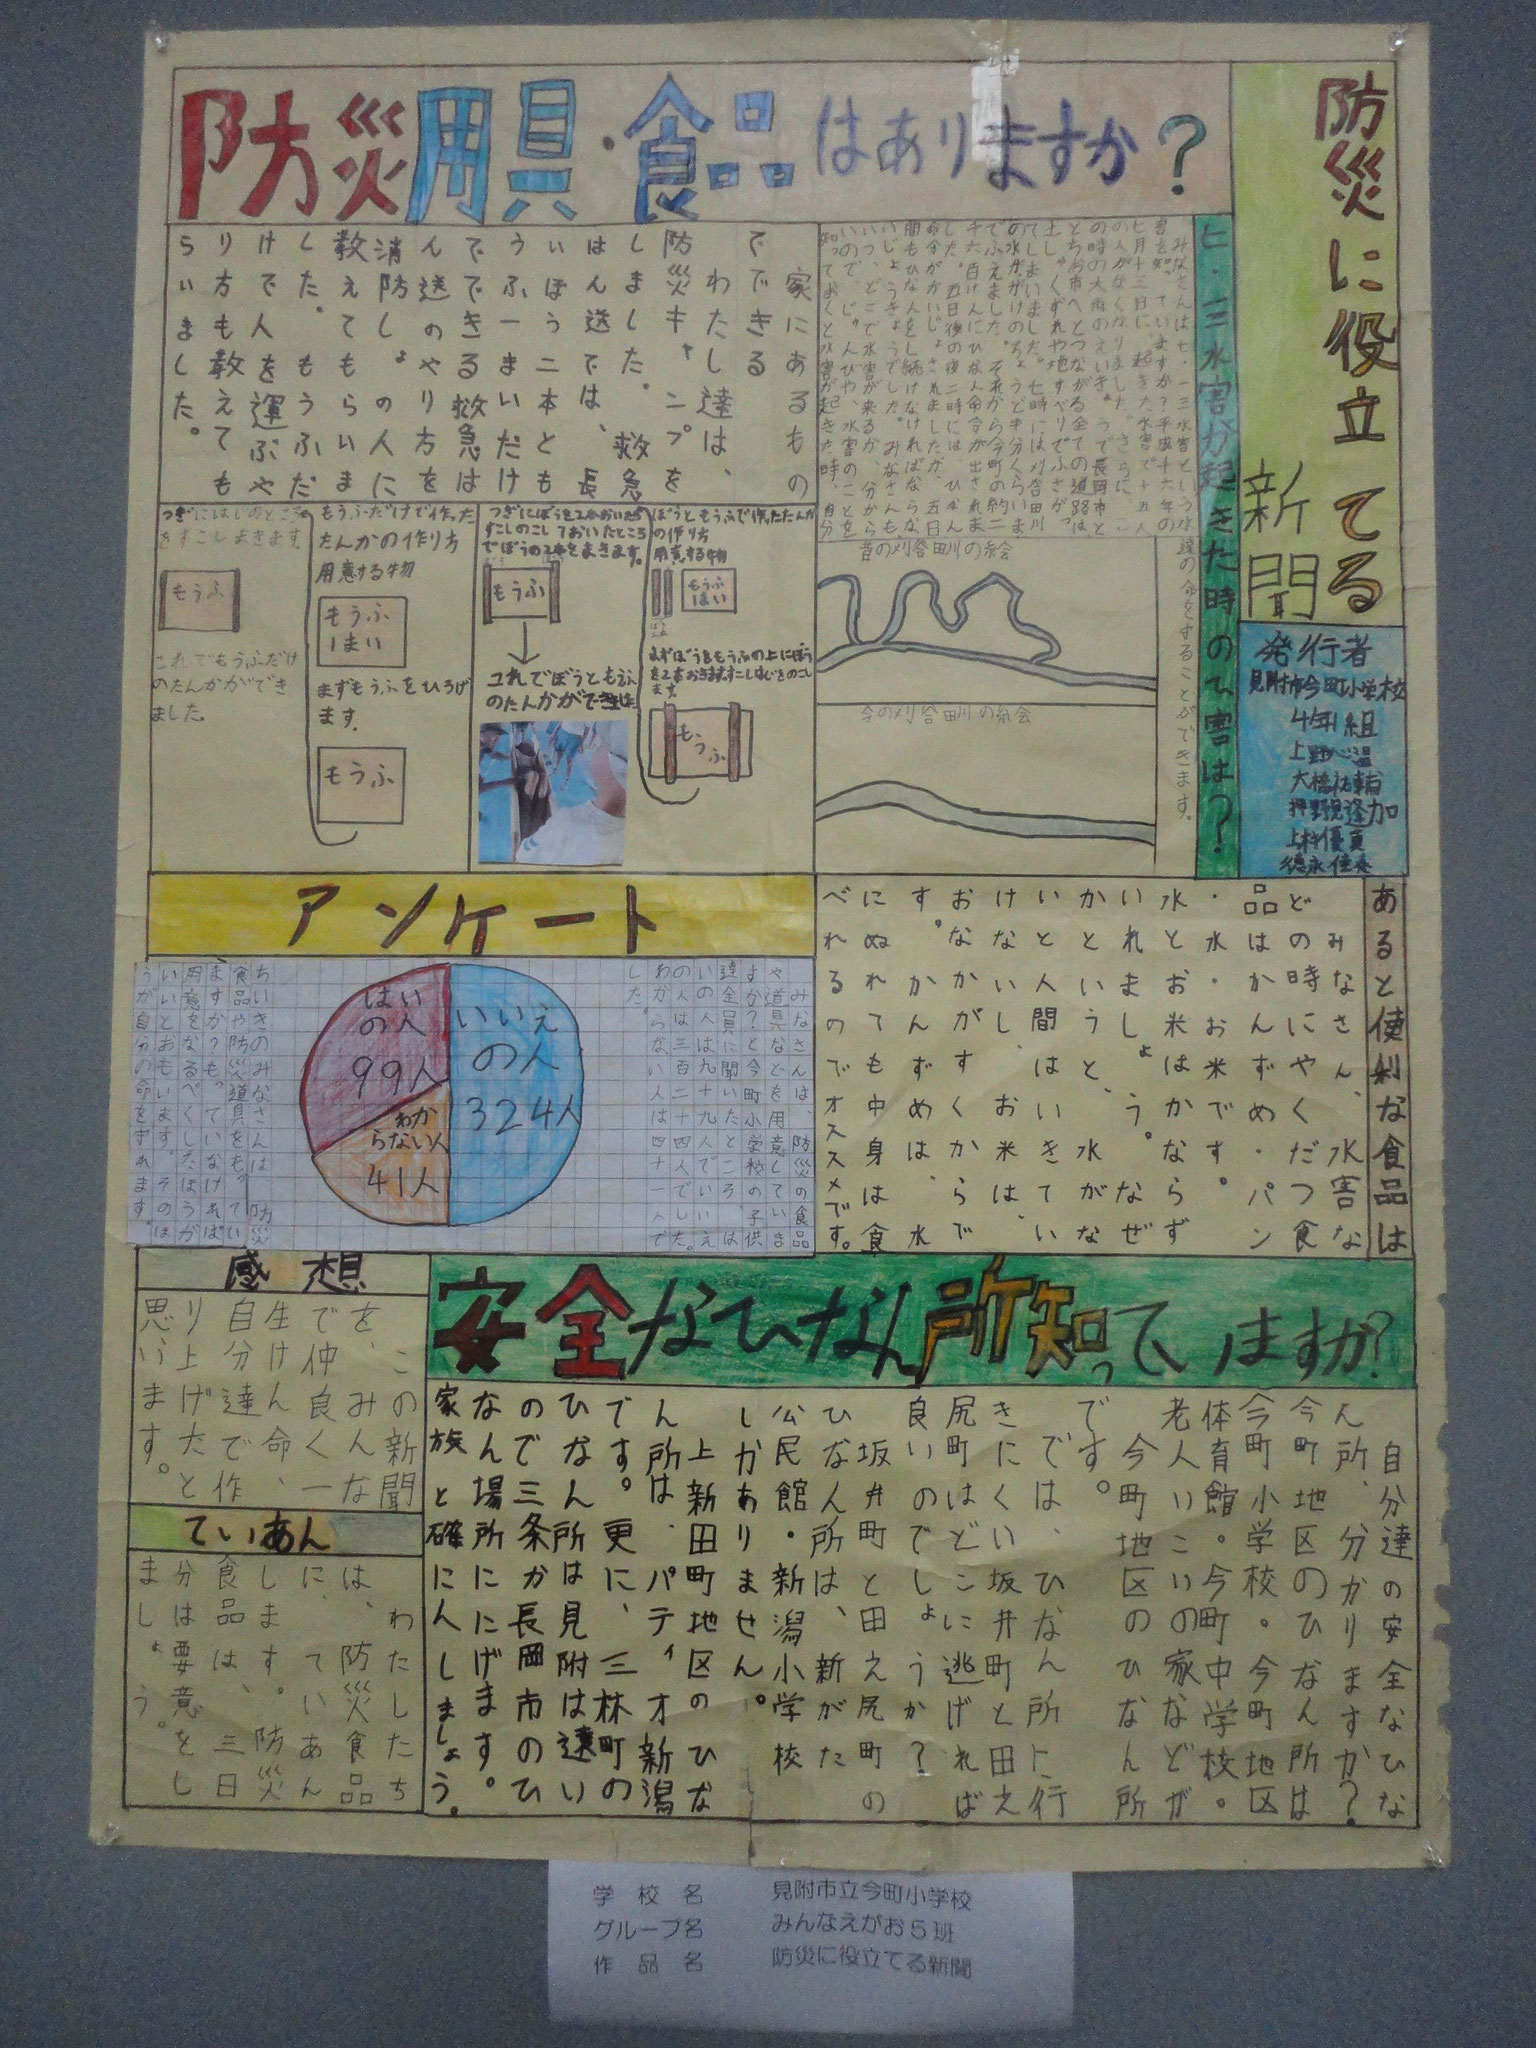 防災に役立てる
新聞
発行者
見附市今町小学校
4年1組
上野心温
大橋佑輔
上村優真
防災用具・食品はありますか?
七・一三水害が起きた時のひ害は?
みなさんは七・一三水害という水
害を知っていますか?平成十六年の
七月十三日に、起きた水害で十五人
の人がなくなりました。さらに、こ
の時の大雨のえいきょうで長岡市と
とちお市へとつながる全ての道路は
土しゃくずれや地すべりでふさがっ
てしまいました。七時には刈谷田川
の水がかけのちょうど半分くらいま
でふえました。それから今町の約二
千六百けんにひなん命令が出されま
した。五日後の夜二時には、ひなん
命令がかいじょされましたが、五日
間もひなんをし続けなければならな
いじょうきょうでした。みなさんも
いつ、どこで水害が来るか、分から
ないので、じゅんびや、水害のことを
知っておくと水害が起きた時、自分
達の命をまもることができます。
昔の刈谷田川の絵
今の刈谷田川の絵
家にあるもの
でできる
わたし達は、
防災キャンプを
しました。救急
はん送では、長
いぼう二本とも
うふ一まいだけ
でできる救急は
ん送のやり方を
消防しょの人に
教えてもらいま
した。もうふだ
けで人を運ぶや
り方も教えても
らいました。
ぼうともうふで作ったたんか
の作り方
用意する物
もうふ
1まい
まずぼうをもうふの上にぼう
を2本おきます。すこしはじをのこし
ます。
もうふ
つぎにぼうを2本おいたら
すこしのこしておいたところ
でぼうの2本をまきます。
もうふ
これでぼうともうふ
のたんかができました
もうふだけで作った
たんかの作り方
用意する物
もうふ
1まい
まずもうふをひろげ
ます。
もうふ
つぎにはじのところ
をすこしまきます
もうふ
これでもうふだけ
のたんかができ
ました。
あると便利な食品は
みなさん、水害な
どの時にやくだつ食
品はかんずめ・パン
・水・お米です。
水とお米はかならず
いれましょう。なぜ
かというと、水がな
いと人間はいきてい
けないし、お米は、
おなかがすくからで
す。かんずめは、水
にぬれても中身は食
べれるのでオススメです。
アンケート
みなさんは、防災の食品
や道具などを用意していま
すか?と今町小学校の子供
達全員に聞いたところ、は
いの人は九十九人でいいえ
の人は三百二十四人でした。
わからない人は四十一人で
した。
いいえ
の人
324人
はい
の人
99人
わか
らない人
41人
ちいきのみなさんは、防災
食品や防災道具をもってい
ますか?もっていなければ
用意をなるべくしたほうが
いいとおもいます。そのほ
うが自分の命をまもれます。
安全なひなん所知っていますか?
自分達の安全なひな
ん所、分かりますか?
今町地区のひなん所は
今町小学校。今町地区
体育館。今町中学校。
老人いこいの家などが
今町地区のひなん所
です。
では、ひなん所に行
きにくい坂井町と田え
尻町はどこに逃げれば
良いのでしょうか?
坂井町と田え尻町の
ひなん所は、新がた
公民館・新潟小学校
しかありません。
上新田町地区のひな
ん所は、パティオ新潟
です。更に、三林町の
ひなん所は見附は遠い
ので三条か長岡市のひ
なん場所ににげます。
家族と確にんしましょう。
感想
この新聞
を、みんな
で仲良く一
生けん命、
自分達で作
り上げたと
思います。
ていあん
わたしたち
は、防災食品
に、ていあん
します。防災
食品は、三日
分は要意をし
ましょう。
学校名 見附市立今町小学校
グループ名 みんなえがお5班
作品名 防災に役立てる新聞